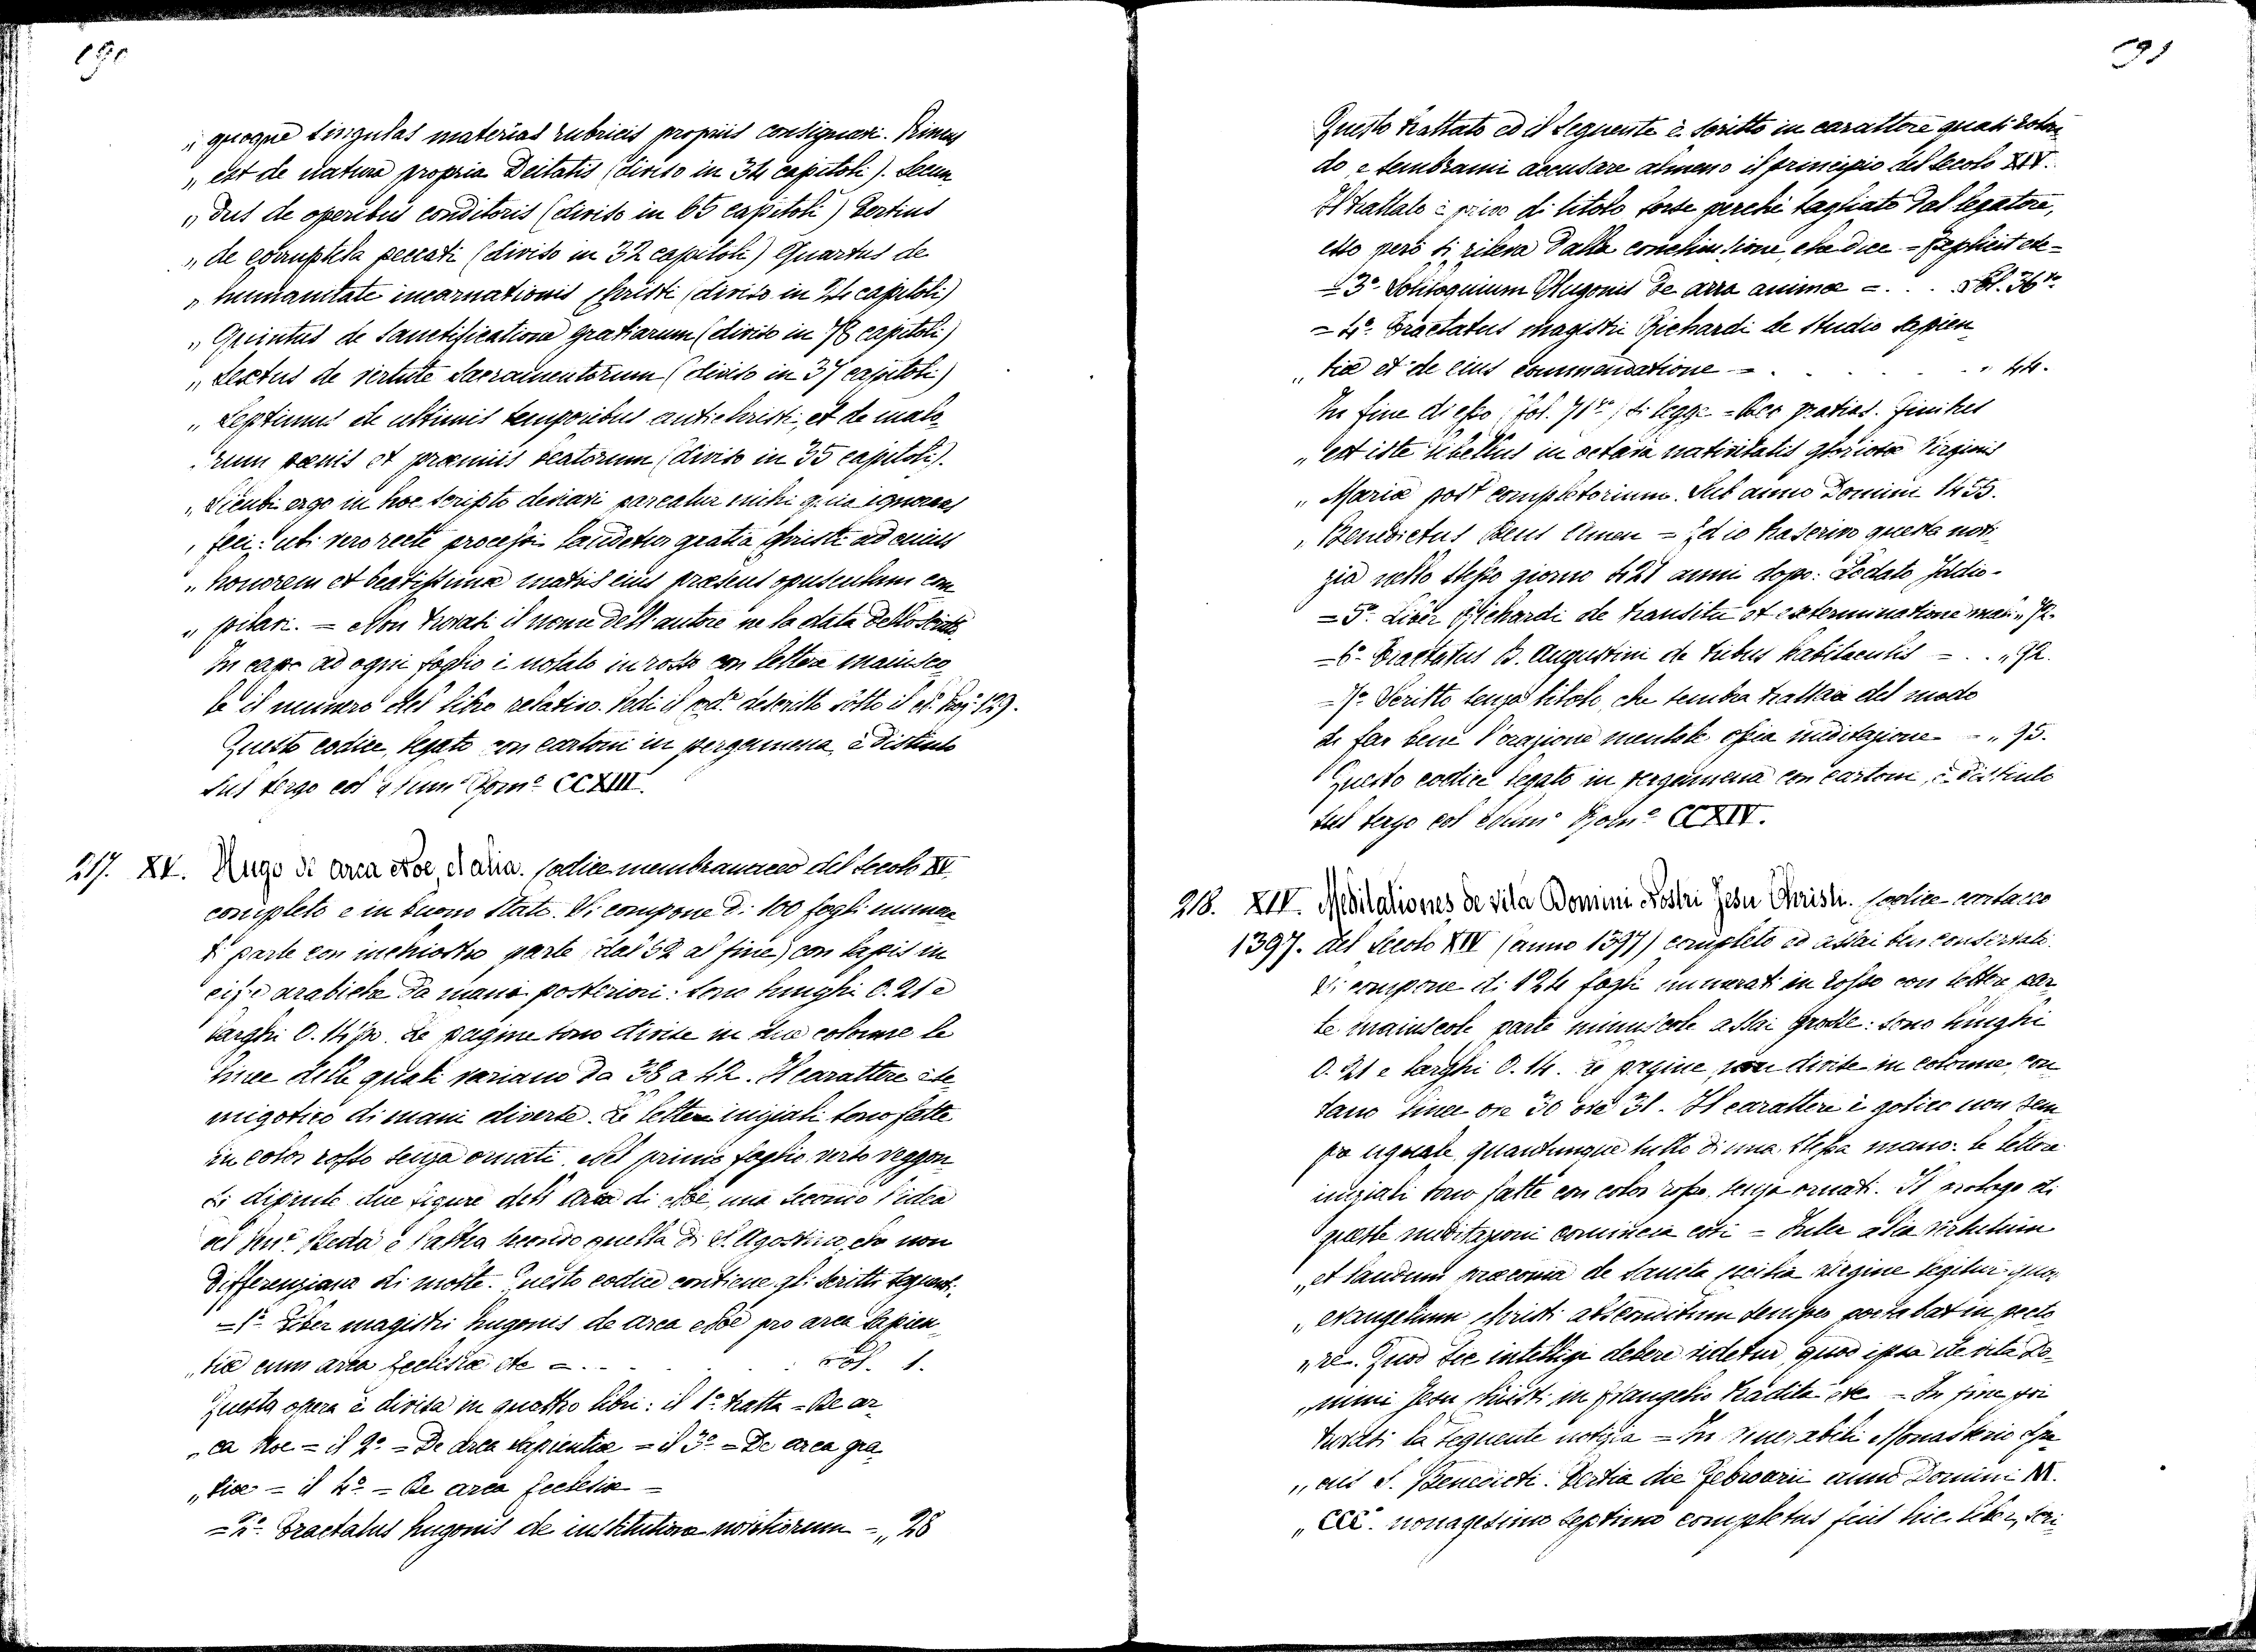 190
„ quoque singulas materias rubricis propriis consignavi. Primus
„ est de natura propria Deitatis (diviso in 34 capitoli). Secun„
„ dus de operibus conditoris (diviso in 65 capitoli) Tertius
„ de corruptela peccati (diviso in 32 capitoli) Quartus de
„ humanitate incarnationis Christi (diviso in 24 capitoli)
„ Quintus de sanctificatione gratiarum (diviso in 78 capitoli)
„ Sextus de virtute Sacramentorum (diviso in 37 capitoli)
„ Septimus de ultimis temporibus antichristi, et de malo„
„ rum poenis et proemiis beatorum (diviso in 35 capitoli).
„ Sicubi ergo in hoc scripto deviavi parcatur mihi quia ignorans
„ feci: ubi vero recte processi laudetur gratia Christi ad cuius
„ honorem et beatissimæ matris eius præsens opusculum com„
„ pilavi. = Non trovasi il nome dell'autore ne la data dello scritto.
In capo ad ogni foglio è notato in rosso con lettere maiusco„
le il numero del libro relativo. Vedi il cod.e descritto sotto il n.o 129.
Questo codice, legato con cartoni in pergamena, è distinto
sul tergo col Num.o Rom.o CCXIII.
217. XV. Hugo de arca Noe, et alia. Codice membranaceo del secolo XV
completo e in buono stato. Si compone di 100 fogli numera„
ti parte con inchiostro parte (dal 52 al fine) con lapis in
cifre arabiche da mano posteriori: sono lunghi 0.21 e
larghi 0.14½. Le pagine sono divise in due colonne le
linee delle quali variano da 38 a 42. Il carattere è se„
migotico di mani diverse. Le lettere iniziali sono fatte
in color rosso senza ornati. Nel primo foglio verso veggon„
si dipinte due figure dell'arca di Noè, una secondo l'idea
del Ven.e Beda e l'altra secondo quella di S. Agostino, che non
differenziano di molto. Questo codice contiene gli scritti seguenti.
= 1.o Liber magistri hugonis de arca Noe pro arca sapien„
„ tiæ cum arca Ecclesiæ etc = . . . Fol. 1.
Questa opera è divisa in quattro libri: il 1.o tratta = De ar„
„ ca Noe = il 2.o = De arca sapientiæ = il 3.o = De arca gra„
„ tiæ = il 4.o = De arca Ecclesiæ =
= 2.o Tractatus hugonis de institutione novitiorum = „ 28
191
Questo trattato ed il seguente è scritto in carattere quasi roton„
do e sembrami accusare almeno il principio del secolo XIV.
Il trattato è privo di titolo forse perchè tagliato dal legatore,
esso però si rileva dalla conclusione, che dice = Explicit etc =
= 3.o Soliloquium Hugonis de arra animæ = . . . Fol. 36 v.o
= 4.o Tractatus magistri Richardi de studio sapien„
„ tiæ et de eius commendatione = . . . „ 44.
In fine di esso (fol. 71 v.o) si legge = Deo gratias. Finitus
„ est iste libellus in octava nativitatis gloriosæ Virginis
„ Mariæ post completorium. Sub anno Domini 1455.
„ Benedictus Deus Amen = Ed io trascrivo questa noti„
zia nello stesso giorno 421 anni dopo: Lodato Iddio.
= 5.o Liber Richardi de transitu et exterminatione „ 72.
= 6.o Tractatus B. Augustini de tribus habitaculis = . . „ 92.
= 7.o Scritto senza titolo, che sembra trattare del modo
di far bene l'orazione mentale ossia meditazione = „ 95.
Questo codice legato in pergamena con cartoni, è distinto
sul tergo col Num.o Rom.o CCXIV.
218. XIV. Meditationes de vita Domini Nostri Jesu Christi. Codice cartaceo
1397. del secolo XIV (anno 1397) completo ed assai ben conservato.
Si compone di 124 fogli numerati in rosso con lettere par„
te maiuscole parte minuscole assai grosse: sono lunghi
0.21 e larghi 0.14. Le pagine, non divise in colonne, con„
tano linee ora 30 ora 31. Il carattere è gotico non sem„
pre uguale, quantunque tutto di una stessa mano: le lettere
iniziali sono fatte con color rosso, senza ornati. Il prologo di
queste meditazioni comincia così = Inter alia virtutum
„ et laudum præconia de sancta Cecilia virgine legitur quod
„ evangelium Christi absconditum semper portabat in pecto„
„ re. Quod sic intelligi debere videtur, quod ipsa de vita Do„
„ mini Jesu Christi in Evangelio tradita etc = In fine poi
trovasi la seguente notizia = In venerabili Monasterio
„ S. Benedicti. Tertia die Februarii anno Domini M.
„ CCC.o nonagesimo septimo completus fuit hic liber, scri„